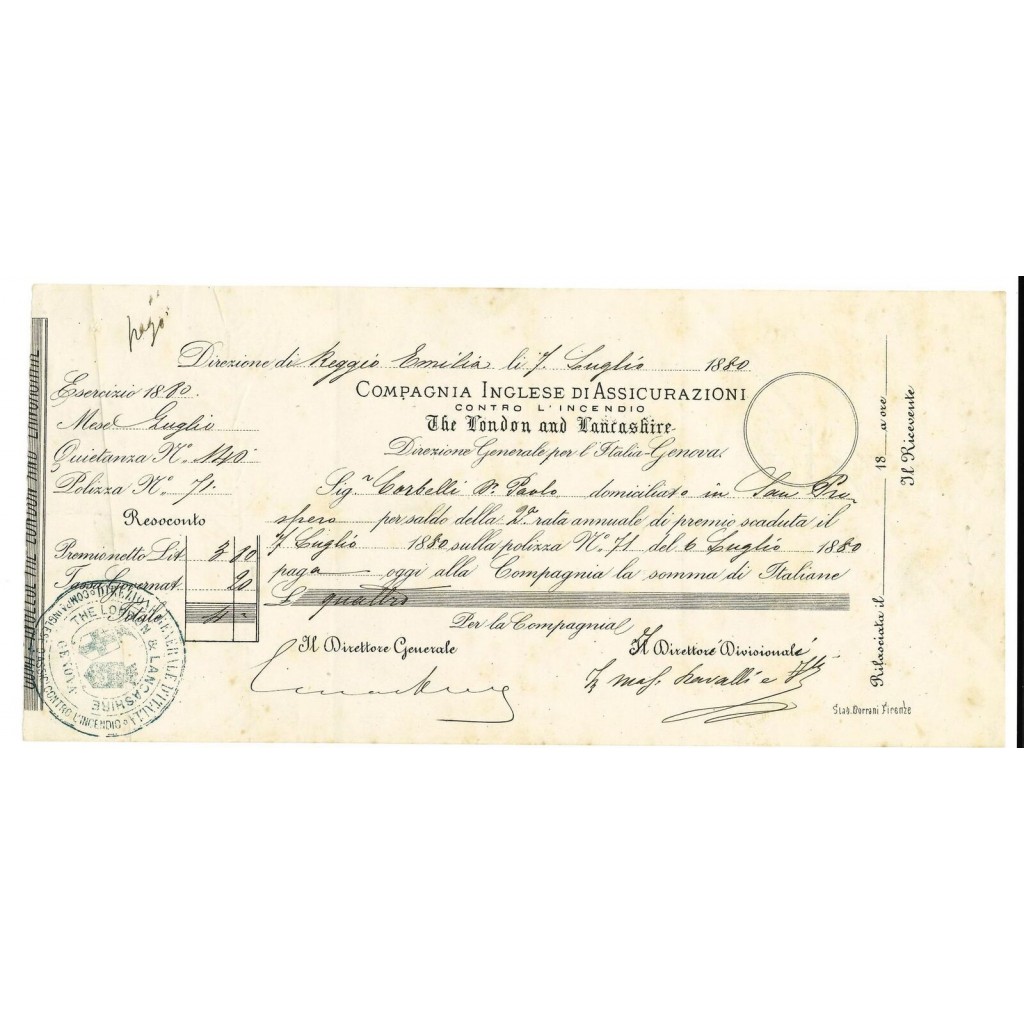 pagò
Direzione di Reggio Emilia li 7 Luglio 1880
Esercizio 1880.
Mese Luglio
Quietanza N.º 140
Polizza N.º 71.
Resoconto
Premio netto Lit 3 80
Tassa Governat. 20
Totale 4 -
COMPAGNIA INGLESE DI ASSICURAZIONI
CONTRO L'INCENDIO
The London and Lancashire
Direzione Generale per l'Italia-Genova
Sig.r Corbelli Paolo domiciliato in San Pro-
spero per saldo della 2a rata annuale di premio scaduta il
7 Luglio 1880 sulla polizza N.º 71 del 6 Luglio 1880
paga oggi alla Compagnia la somma di Italiane
£ quattro
Per la Compagnia
Il Direttore Generale
Il Direttore Divisionale
Stab. Pierani Firenze
18 a ore
Rilasciata il
Il Ricevente
DIREZIONE GENERALE D'ITALIA
CONTRO L'INCENDIO
THE LONDON & LANCASHIRE
GENOVA
THE LONDON AND LANCASHIRE